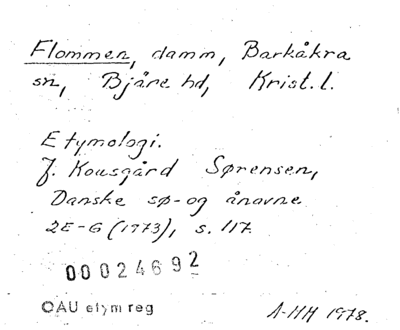 Flommen, damm, Barkåkra
sn, Bjäre hd, Krist. l.
Etymologi.
J. Kousgård Sørensen,
Danske sø- og ånavne
2E-G (1973), s. 117.
00024692
OAU etym reg
A-HH 1978.